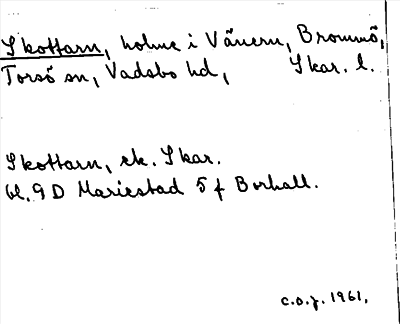 Skottarn, holme i Vänern, Brommö,
Torsö sn, Vadsbo hd, Skar. l.
Skottarn, ek. Skar.
bl. 9D Mariestad 5 f Borhall.
C.O.J. 1961.